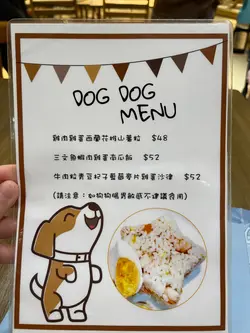 DOG DOG
MENU
雞肉雞蛋西蘭花斑山薯粒 $48
三文魚蝦肉雞蛋南瓜飯 $52
牛肉粒青豆杞子藜麥片雞蛋沙律 $52
(請注意：如狗狗嗎男敏感不建議食用)